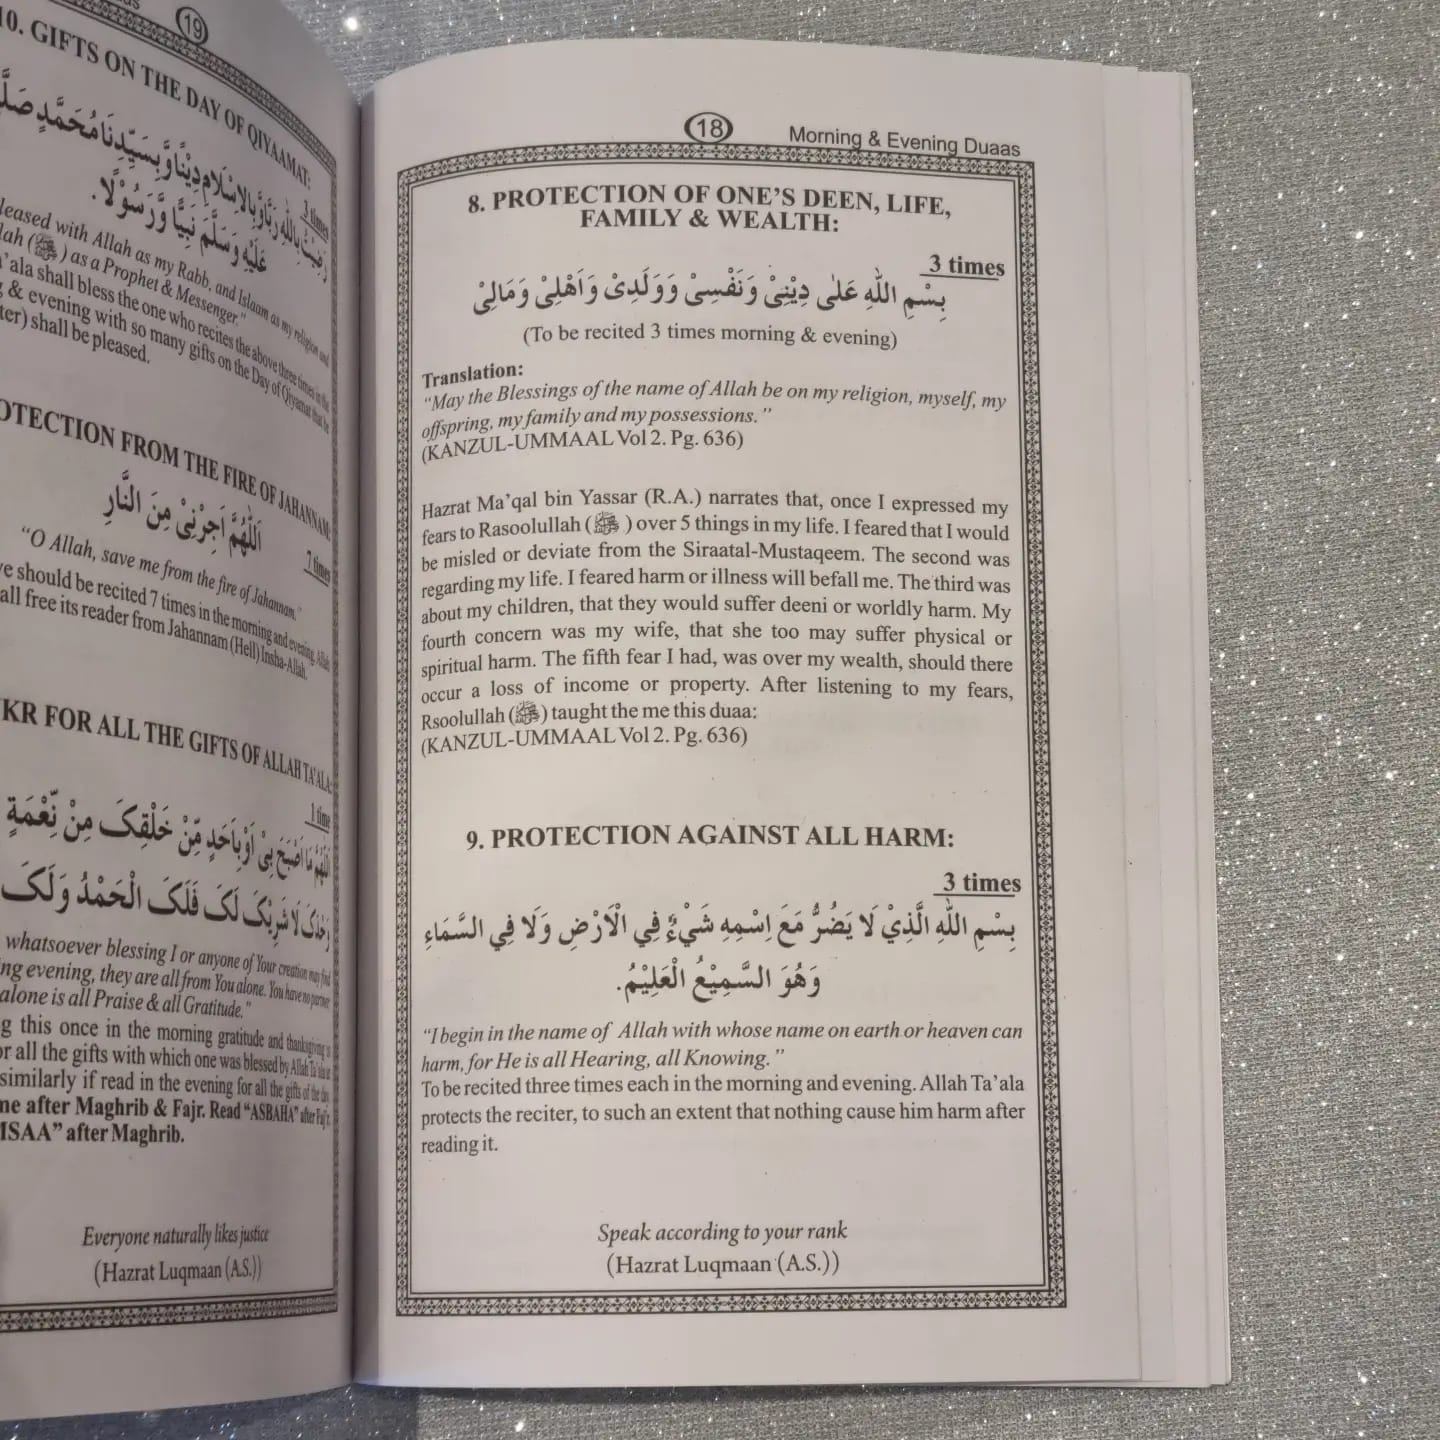 18
Morning & Evening Duaas
8. PROTECTION OF ONE'S DEEN, LIFE,
FAMILY & WEALTH:
3 times
بِسْمِ اللّٰهِ عَلٰى دِيْنِىْ وَنَفْسِىْ وَوَلَدِىْ وَاَهْلِىْ وَمَالِىْ
(To be recited 3 times morning & evening)
Translation:
“May the Blessings of the name of Allah be on my religion, myself, my
offspring, my family and my possessions.”
(KANZUL-UMMAAL Vol 2. Pg. 636)
Hazrat Ma’qal bin Yassar (R.A.) narrates that, once I expressed my
fears to Rasoolullah (ﷺ) over 5 things in my life. I feared that I would
be misled or deviate from the Siraatal-Mustaqeem. The second was
regarding my life. I feared harm or illness will befall me. The third was
about my children, that they would suffer deeni or worldly harm. My
fourth concern was my wife, that she too may suffer physical or
spiritual harm. The fifth fear I had, was over my wealth, should there
occur a loss of income or property. After listening to my fears,
Rsoolullah (ﷺ) taught the me this duaa:
(KANZUL-UMMAAL Vol 2. Pg. 636)
9. PROTECTION AGAINST ALL HARM:
3 times
بِسْمِ اللّٰهِ الَّذِيْ لَا يَضُرُّ مَعَ اِسْمِهِ شَيْءٌ فِي الْاَرْضِ وَلَا فِي السَّمَاءِ
وَهُوَ السَّمِيْعُ الْعَلِيْمُ.
“I begin in the name of Allah with whose name on earth or heaven can
harm, for He is all Hearing, all Knowing.”
To be recited three times each in the morning and evening. Allah Ta’ala
protects the reciter, to such an extent that nothing cause him harm after
reading it.
Speak according to your rank
(Hazrat Luqmaan (A.S.))
19
10. GIFTS ON THE DAY OF QIYAAMAT:
3 times
رَضِيْتُ بِاللّٰهِ رَبًّا وَّبِالْاِسْلَامِ دِيْنًا وَّبِسَيِّدِنَا مُحَمَّدٍ
عَلَيْهِ وَسَلَّمَ نَبِيًّا وَّرَسُوْلًا.
with Allah as my Rabb, and Islaam as my religion and
(ﷺ) as a Prophet & Messenger.”
shall bless the one who recites the above three times in the
& evening with so many gifts on the Day of Qiyamat that he
shall be pleased.
FROM THE FIRE OF JAHANNAM:
اَللّٰهُمَّ اَجِرْنِىْ مِنَ النَّارِ
7 times
“O Allah, save me from the fire of Jahannam.”
should be recited 7 times in the morning and evening, Allah
free its reader from Jahannam (Hell) Insha-Allah.
FOR ALL THE GIFTS OF ALLAH TA’ALA:
1 time
اَللّٰهُمَّ مَا اَصْبَحَ بِىْ اَوْبِاَحَدٍ مِّنْ خَلْقِكَ مِنْ نِّعْمَةٍ
وَحْدَكَ لَا شَرِيْكَ لَكَ فَلَكَ الْحَمْدُ وَلَكَ
whatsoever blessing I or anyone of Your creation may find
evening, they are all from You alone. You have no partner,
alone is all Praise & all Gratitude.”
this once in the morning gratitude and thanksgiving is
all the gifts with which one was blessed by Allah Ta’ala
similarly if read in the evening for all the gifts of the day.
after Maghrib & Fajr. Read “ASBAHA” after Fajr
after Maghrib.
Everyone naturally likes justice
(Hazrat Luqmaan (A.S.))